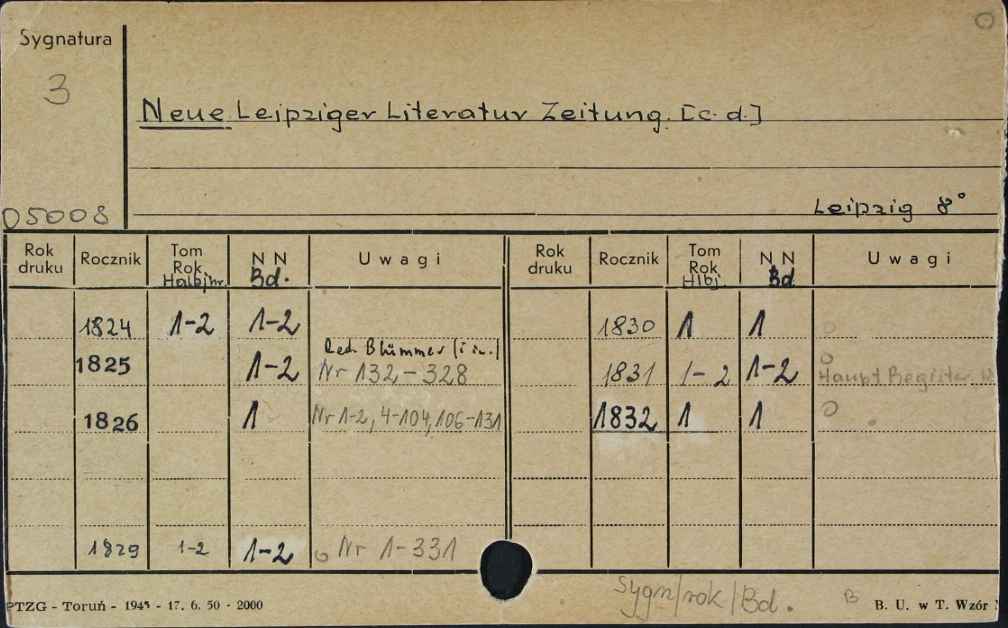 Sygnatura
3
Neue Leipziger Literatur Zeitung. [c. d.]
05008
Leipzig 8°
Rok druku Rocznik Tom Rok Halbjhr. N N Bd. Uwagi Rok druku Rocznik Tom Rok Hlbj. N N Bd Uwagi
1824 1-2 1-2 1830 1 1
Red. Blümmer (i in.)
1825 1-2 Nr 132-328 1831 1-2 1-2 Haupt Register
1826 1 Nr 1-2, 4-104, 106-131 1832 1 1
1829 1-2 1-2 Nr 1-331
Sygn/rok/Bd.
PTZG - Toruń - 1945 - 17. 6. 50 - 2000 B B. U. w T. Wzór